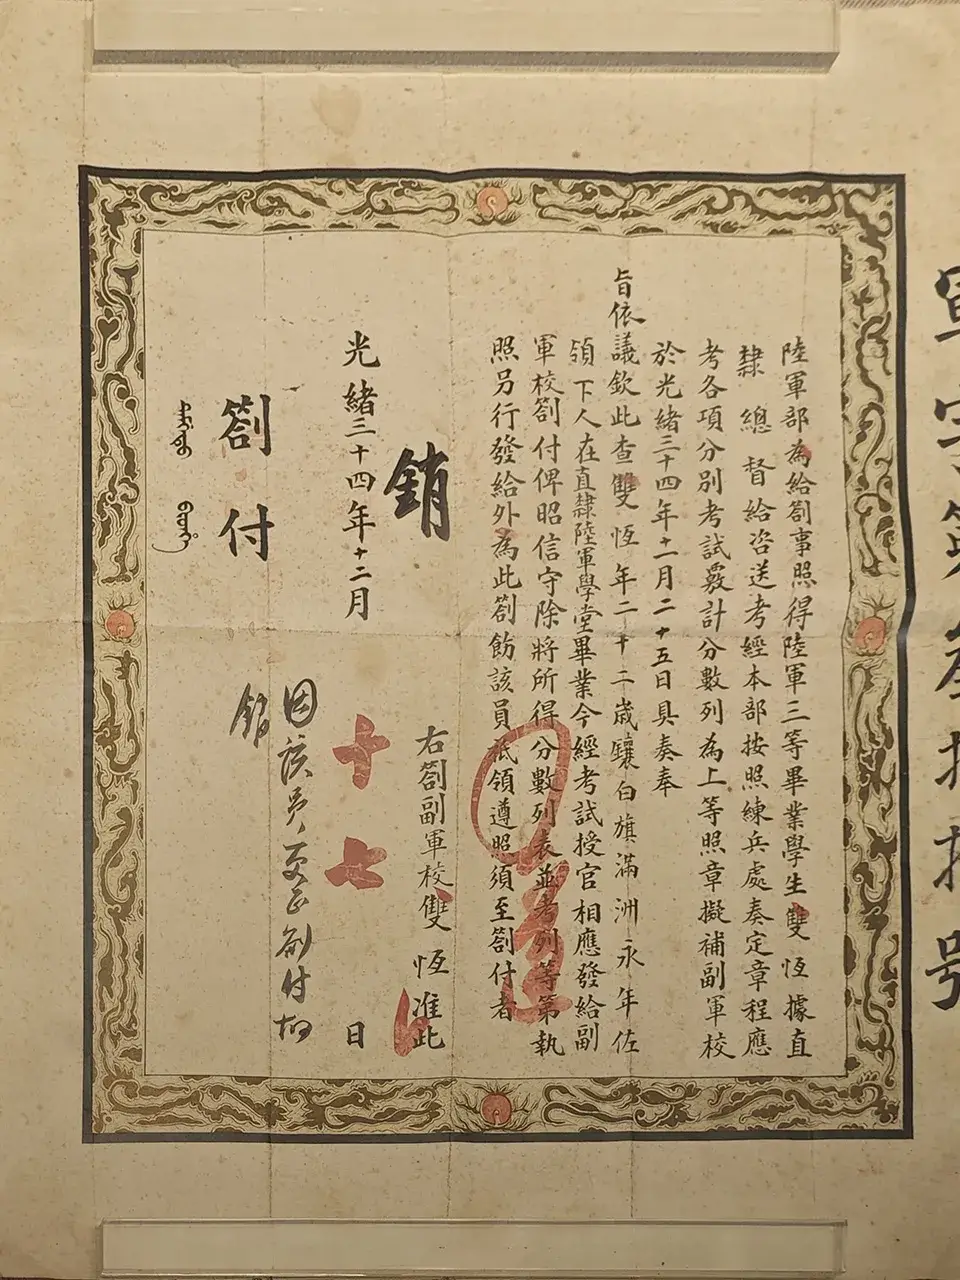 陸軍部為給劄事照得陸軍三等畢業學生雙恆據直
隸總督給咨送考經本部按照練兵處奏定章程應
考各項分別考試覈計分數列為上等照章擬補副軍校
於光緒三十四年十一月二十五日具奏奉
旨依議欽此查雙恆年二十二歲鑲白旗滿洲永年佐
領下人在直隸陸軍學堂畢業今經考試授官相應發給副
軍校劄付俾昭信守除將所得分數列表並考列等第執
照另行發給外為此劄飭該員祗領遵照須至劄付者
右劄副軍校雙恆准此
銷
光緒三十四年十二月十七日
因該員
銷
劄付